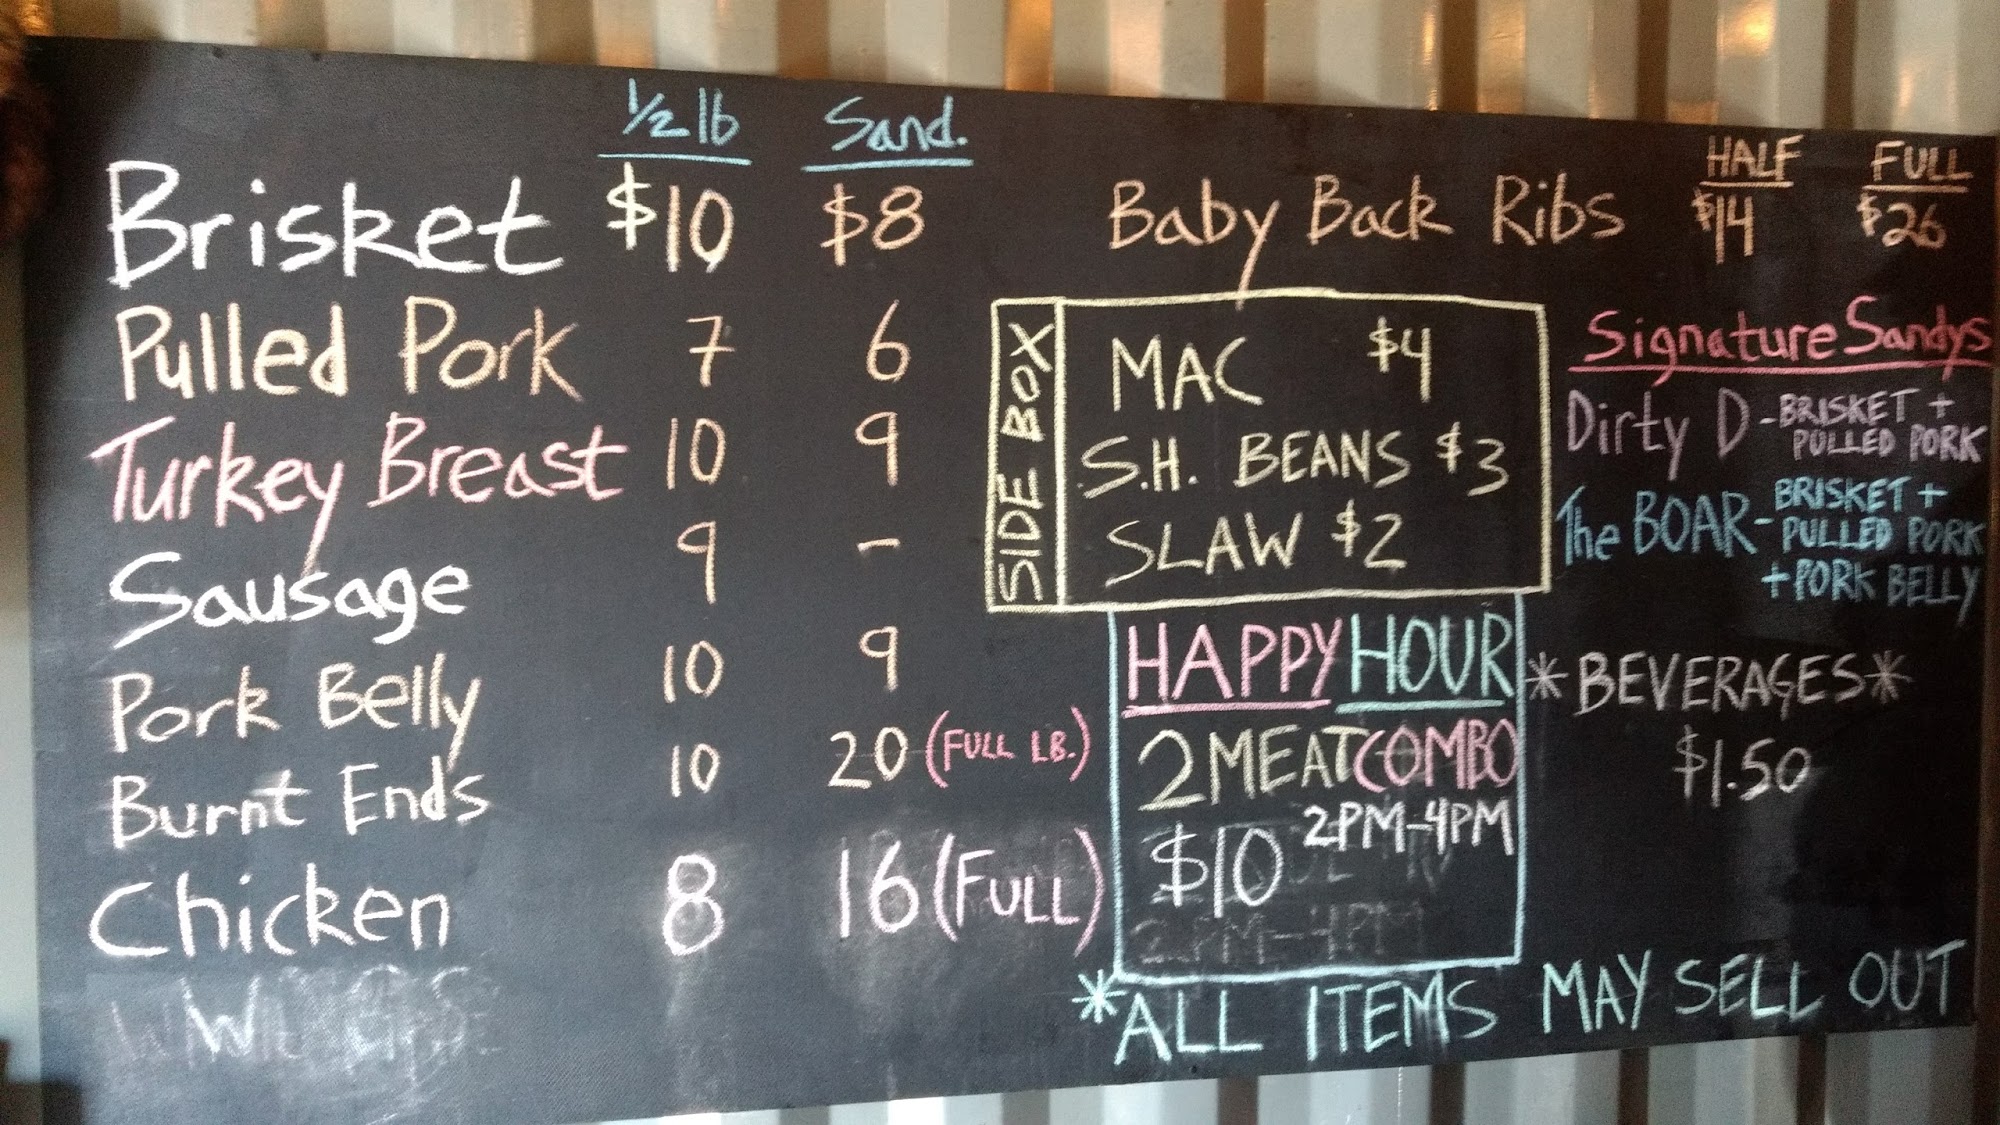 1/2 lb Sand.
Brisket $10 $8
Pulled Pork 7 6
Turkey Breast 10 9
Sausage 9 -
Pork Belly 10 9
Burnt Ends 10 20 (FULL LB.)
Chicken 8 16 (FULL)
HALF FULL
Baby Back Ribs $14 $26
SIDE BOX
MAC $4
S.H. BEANS $3
SLAW $2
Signature Sandys
Dirty D - BRISKET +
PULLED PORK
The BOAR - BRISKET +
PULLED PORK
+ PORK BELLY
HAPPY HOUR
2 MEAT COMBO
2PM-4PM
$10
2PM-4PM
*BEVERAGES*
$1.50
*ALL ITEMS MAY SELL OUT